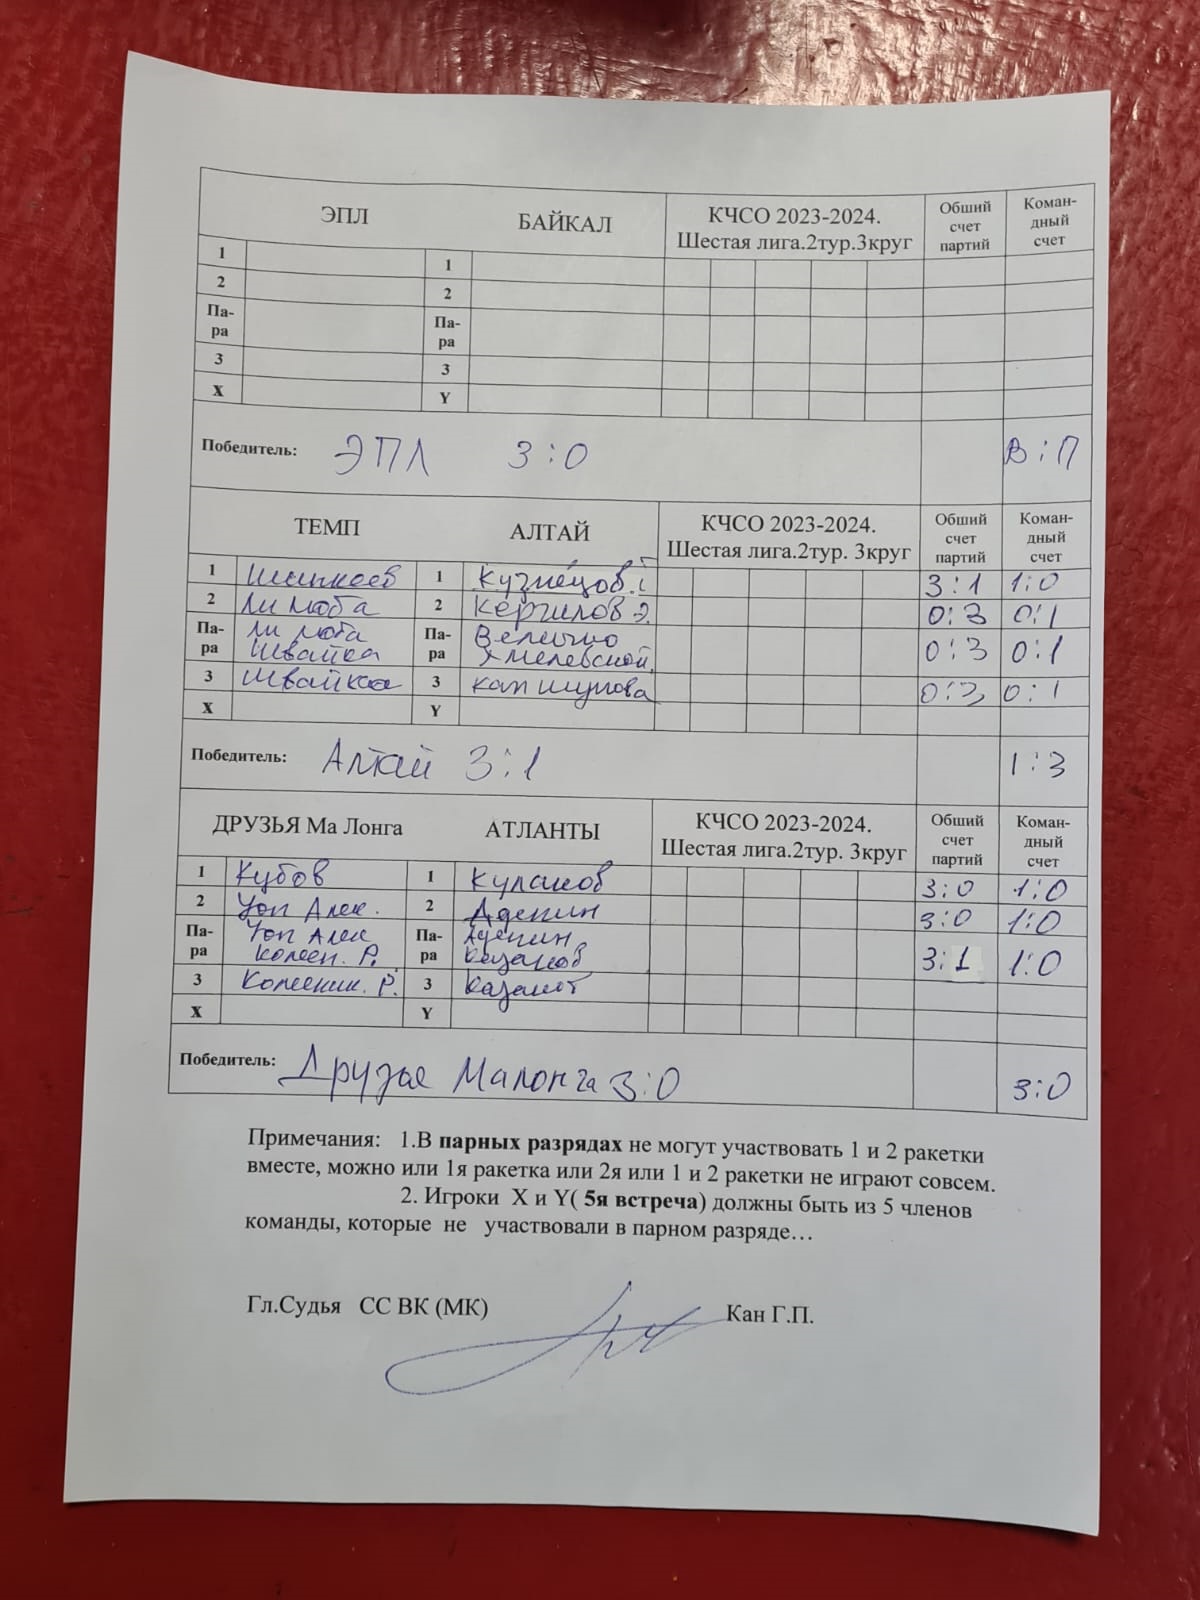 ЭПЛ БАЙКАЛ КЧСО 2023-2024. Шестая лига.2тур.3круг Обший счет партий Коман-дный счет
1 1
2 2
Па-ра Па-ра
3 3
X Y
Победитель: ЭПЛ 3:0 В:П
ТЕМП АЛТАЙ КЧСО 2023-2024. Шестая лига.2тур. 3круг Обший счет партий Коман-дный счет
1 1 Кузнецов. 3:1 1:0
2 Ли Люба 2 Кергилов Э. 0:3 0:1
Па-ра Ли Люба Швайка Па-ра Величко Хмелевской, 0:3 0:1
3 Швайка 3 Капшунова 0:3 0:1
X Y
Победитель: Алтай 3:1 1:3
ДРУЗЬЯ Ма Лонга АТЛАНТЫ КЧСО 2023-2024. Шестая лига.2тур. 3круг Обший счет партий Коман-дный счет
1 Кубов 1 Кулаков 3:0 1:0
2 Алек. 2 Аденин 3:0 1:0
Па-ра Алек Р. Па-ра Аденин Казаков 3:1 1:0
3 Р. 3
X Y
Победитель: Друзья Малонга 3:0 3:0
Примечания: 1.В парных разрядах не могут участвовать 1 и 2 ракетки
вместе, можно или 1я ракетка или 2я или 1 и 2 ракетки не играют совсем.
2. Игроки X и Y( 5я встреча) должны быть из 5 членов
команды, которые не участвовали в парном разряде…
Гл.Судья СС ВК (МК) Кан Г.П.